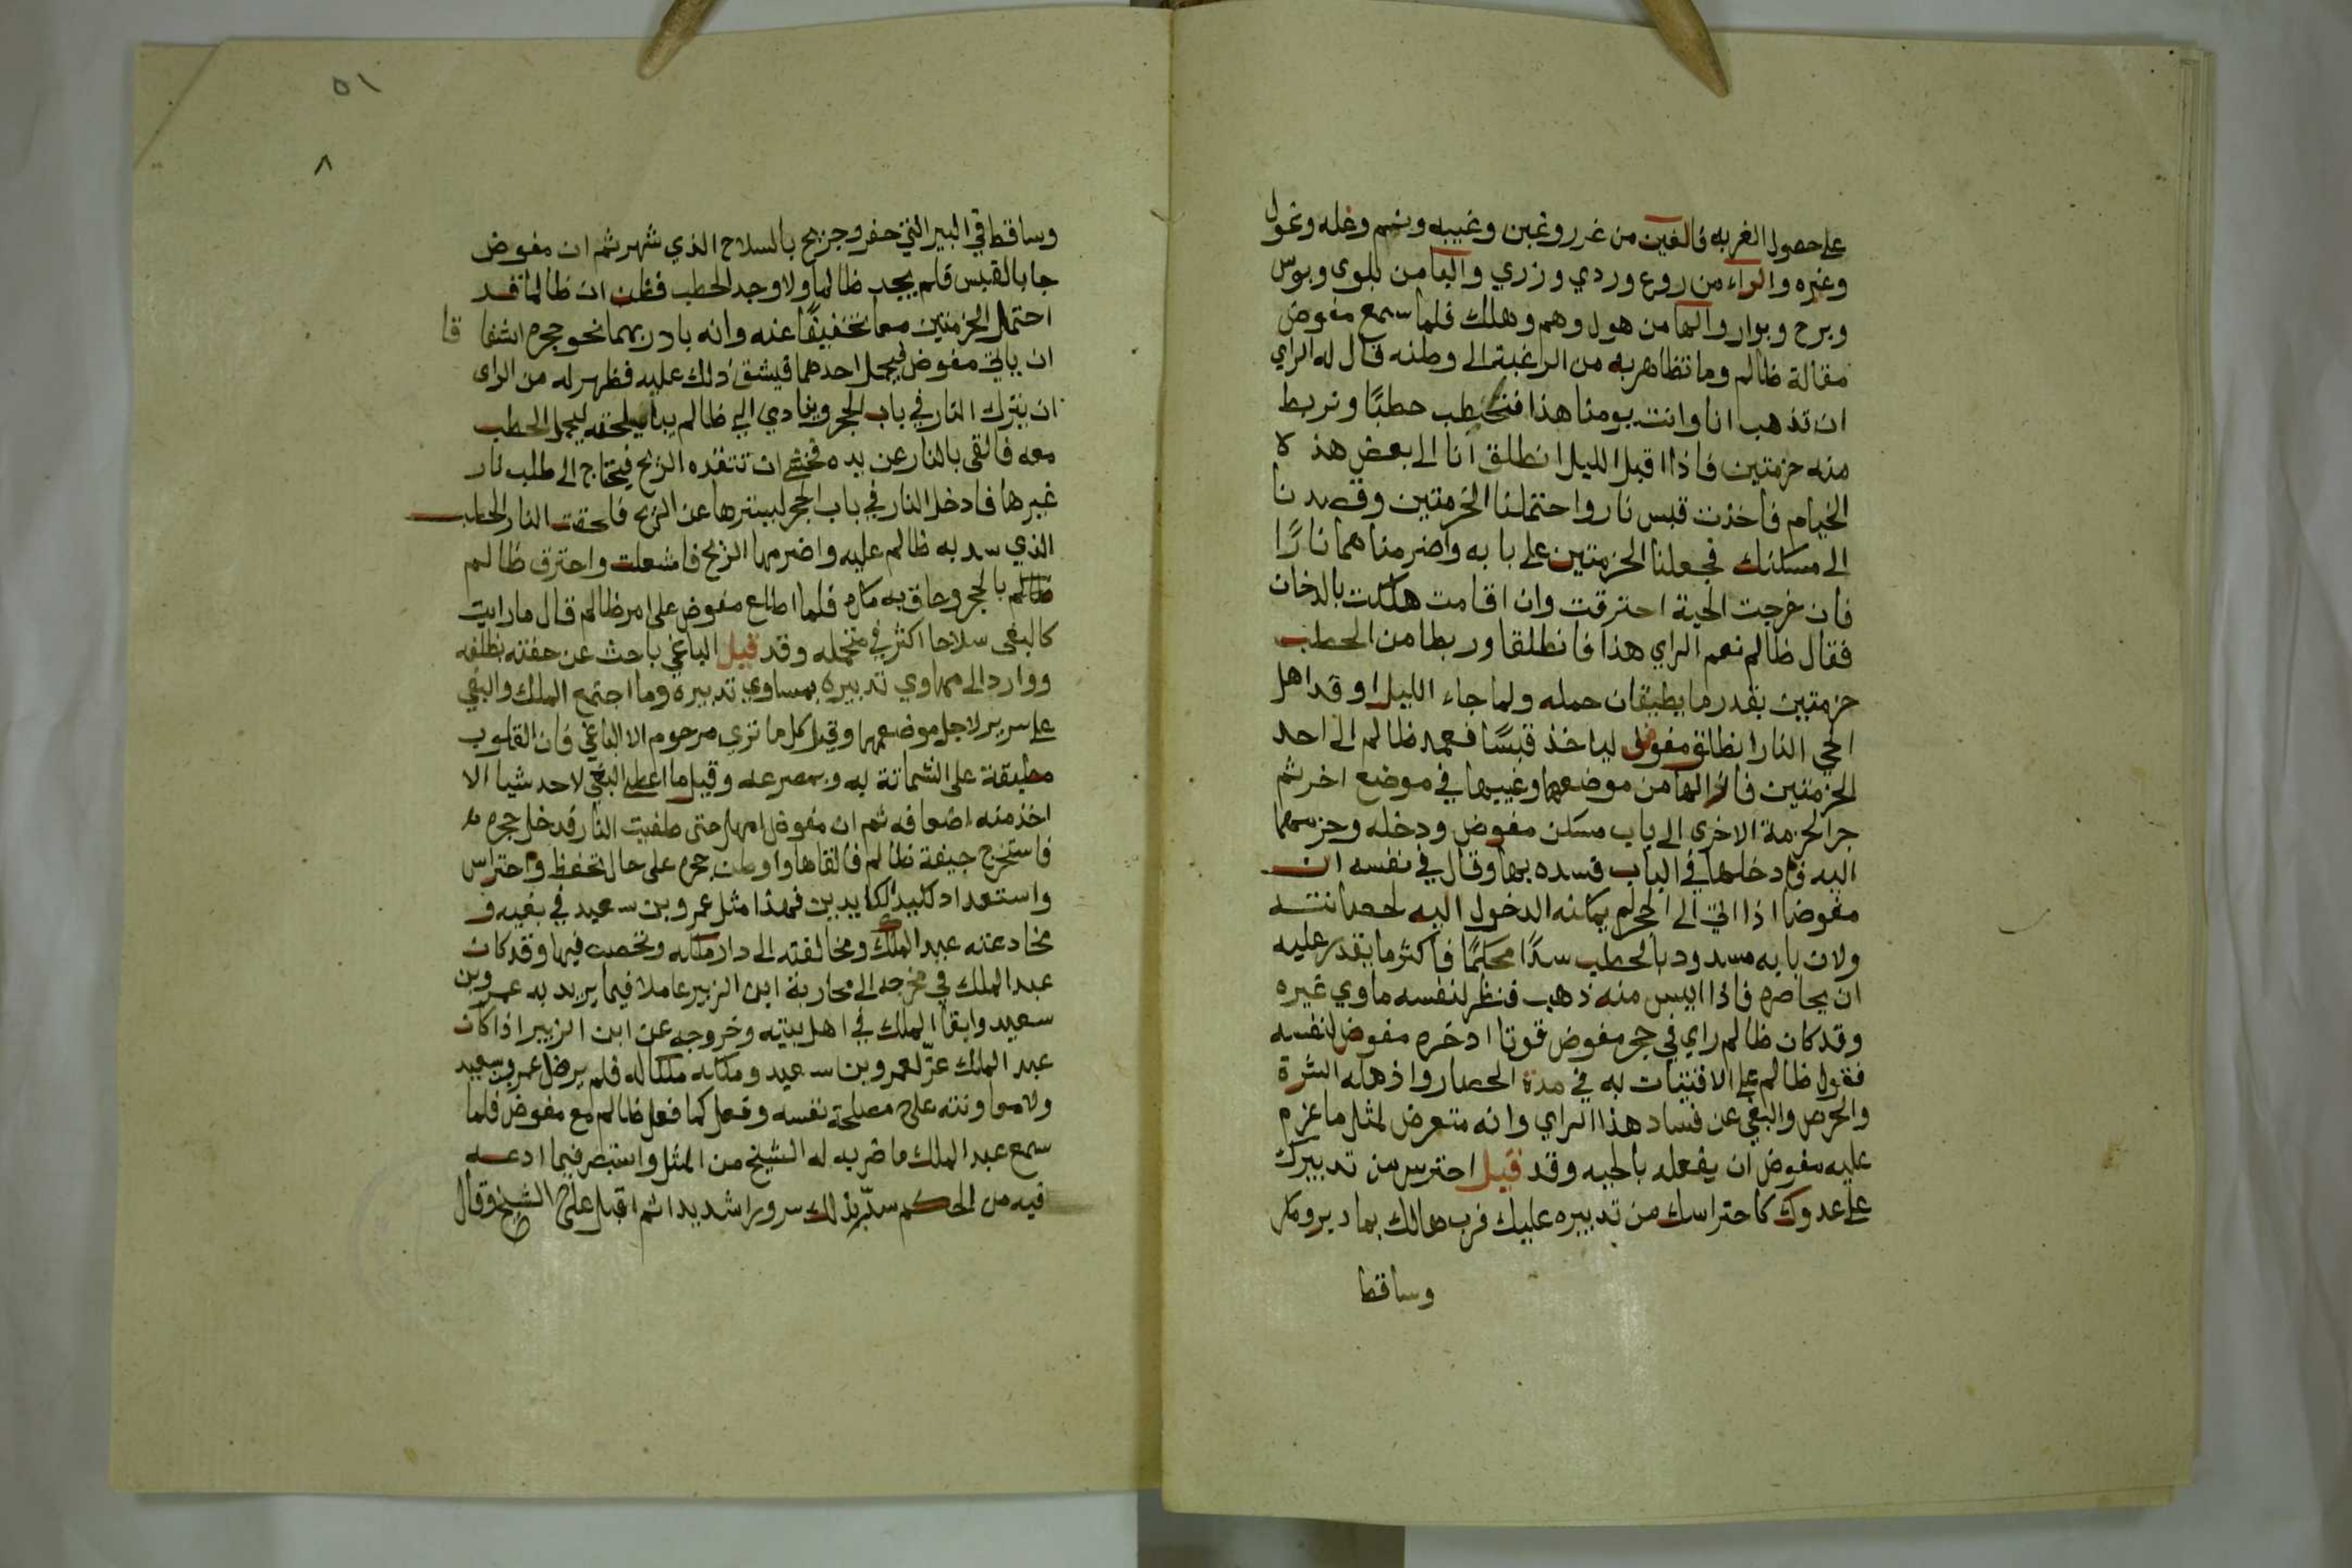 على حصول الغربه فالغين من غرر وغبن وغيبه وغم وغله وغول
وغيره والراء من روع وردي وزري والبا من بلوى وبوس
وبرح وبوار والها من هول وهم وهلك فلما سمع مفوض
مقالة ظالم وما تظاهر به من الرغبة الى وطنه قال له الراي
ان تذهب انا وانت يومنا هذا فنحتطب حطبًا ونربط
منه حزمتين فاذا اقبل الليل انطلق انا الى بعض هذه
الخيام فاخذت قبس نار واحتملنا الحزمتين وقصدنا
الى مسكنك فجعلنا الحزمتين على بابه واضرمناهما نارًا
فان خرجت الحية احترقت وان اقامت هلكت بالدخان
فقال ظالم نعم الراي هذا فانطلقا وربطا من الحطب
حزمتين بقدر ما يطيقان حمله ولما جاء الليل اوقد اهل
الحي النار انطلق مفوض لياخذ قبسًا فعمد ظالم الى احد
الحزمتين فازالها من موضعها وغيبها في موضع اخر ثم
جر الحزمة الاخرى الى باب مسكن مفوض ودخله وجر
اليه فادخلها في الباب فسده بها وقال في نفسه ان
مفوضا اذا اتى الى الحجر لم يمكنه الدخول اليه لحصانته
ولان بابه مسدود بالحطب سدًا محكمًا فاكثر ما يقدر عليه
ان يحاصره فاذا ايس منه ذهب فنظر لنفسه ماوي غيره
وقد كان ظالم راي في حجر مفوض قوتا ادخره مفوض لنفسه
فعول ظالم على الاقتيات به في مدة الحصار واذهله الشرة
والحرص والبغي عن فساد هذا الراي وانه متعرض لمثل ما عزم
عليه مفوض ان يفعله بالحيه وقد قيل احترس من تدبيرك
على عدوك كاحتراسك من تدبيره عليك فرب هالك بما دبر ومكر
وساقطا
٥١
٨
وساقطا في البير التي حفر وجريح بالسلاح الذي شهر ثم ان مفوض
جا بالقبس فلم يجد ظالما ولا وجد الحطب فظن ان ظالما قد
احتمل الحزمتين معا تخفيفًا عنه وانه بادر بهما نحو حجره اشفاقا
ان ياتي مفوض فيحمل احدهما فيشق ذلك عليه فظهر له من الراى
ان يترك النار في باب الحجر وينادي الى ظالم ليلحقه ليحمل الحطب
معه فالقى بالنار عن يده فخشى ان تنقده الريح فيحتاج الى طلب نار
غيرها فادخل النار في باب الحجر ليسترها عن الريح فالحقت النار الحطب
الذي سد به ظالم عليه واضرمها الريح فاشعلت واحترق ظالم
ظالم بالحجر وحاق به مكره فلما اطلع مفوض على امر ظالم قال ما رايت
كالبغى سلاحا اكثر في متحمله وقد قيل الباغي باحث عن حفته بظلفه
ووارد الى مهاوي تدبيره بمساوي تدبيره وما اجتمع الملك والبغي
على سرير لاجل موضعهما وقيل كل ما تزي مرحوم الا الباغي فان القلوب
مطبقة على الشماتة به وبمصرعه وقيل ما اعطى البغي لاحد شيا الا
اخذ منه اضعافه ثم ان مفوض امهل حتى طفيت النار فدخل حجره
فاستخرج جيفة ظالم فالقاها واوطن حجره على حال تحفظ واحتراس
واستعداد لكيد الكايدين فهذا مثل عمرو بن سعيد في بغيه و
مخادعته عبد الملك ومخالفته الى دار ملكه وتحصن فيها وقد كان
عبد الملك في مخرجه الى محاربة ابن الزبير عاملا فيما يريد به عمرو بن
سعيد وابقا الملك في اهل بيته وخروجه عن ابن الزبير اذا كان
عبد الملك عزّ لعمرو بن سعيد وملكه ملكا له فلم يرض عمرو بن سعيد
ولا معاونته على مصلحة نفسه وفعل كما فعل ظالم مع مفوض فلما
سمع عبد الملك ما ضربه له الشيخ من المثل واستبصر فيما ادعه
فيه من الحكم سرّ بذلك سرورا شديدا ثم اقبل على الشيخ وقال